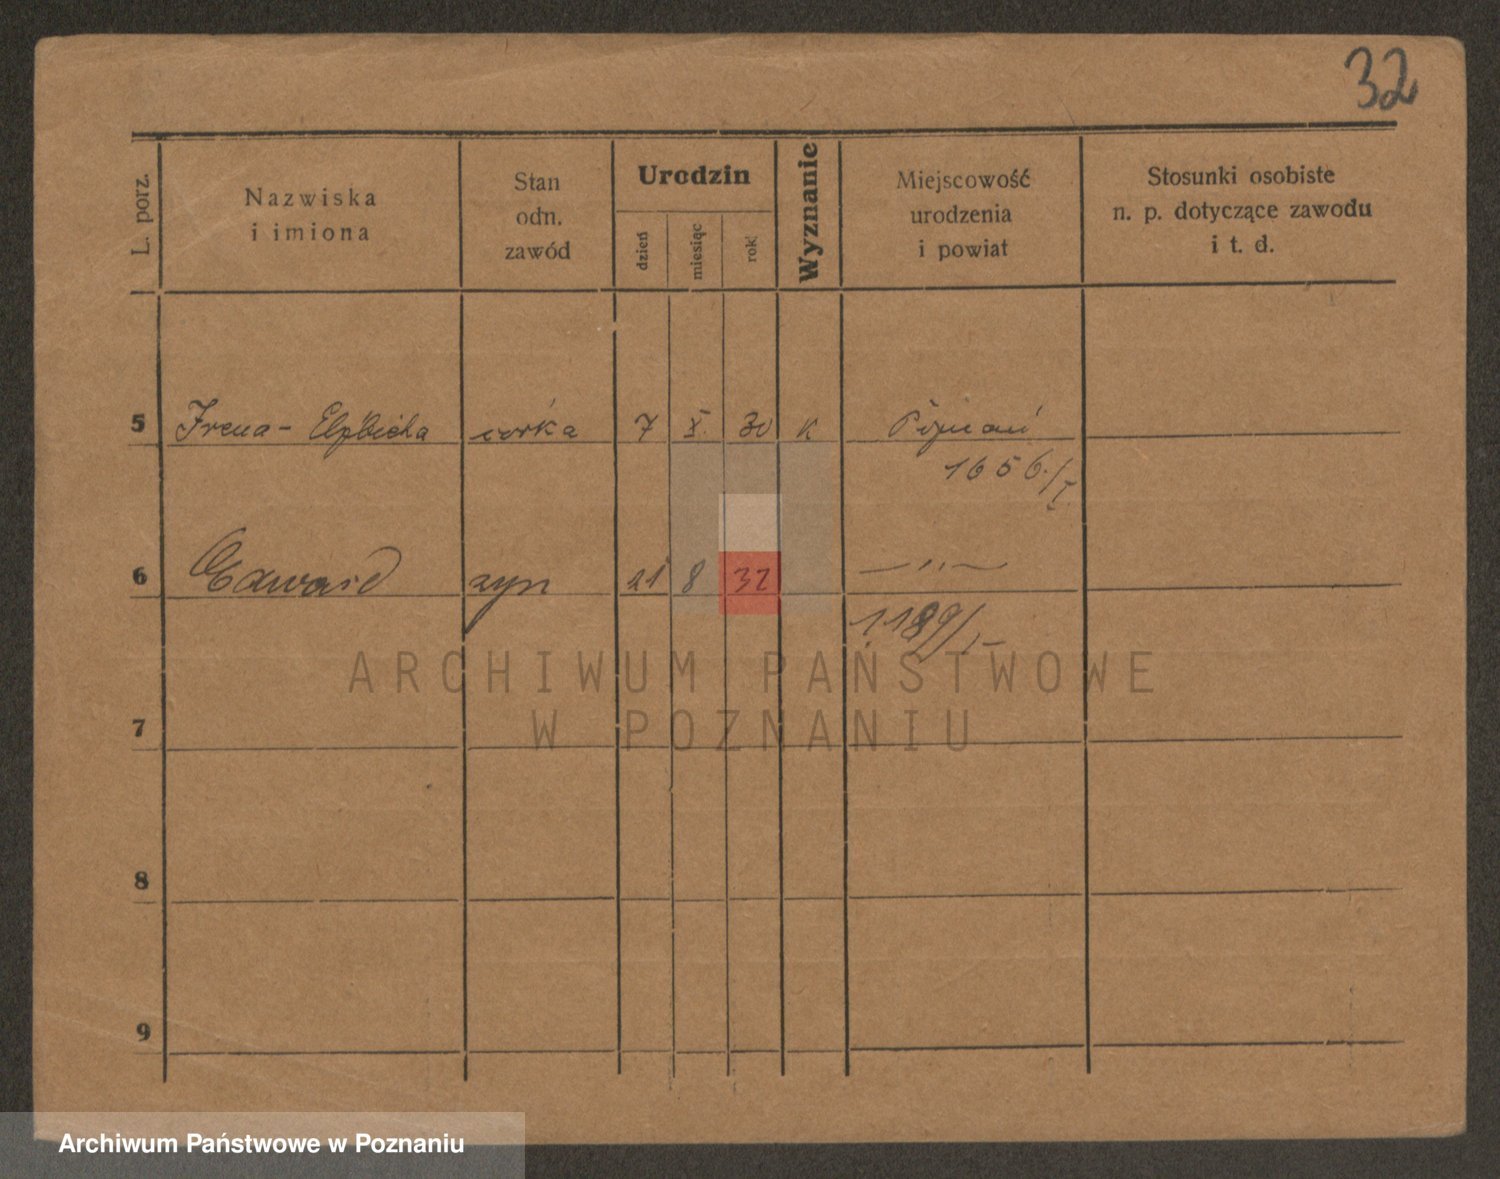 32
L. porz.
Nazwiska
i imiona
Stan
odn.
zawód
Urodzin
dzień
miesiąc
rok
Wyznanie
Miejscowość
urodzenia
i powiat
Stosunki osobiste
n. p. dotyczące zawodu
i t. d.
5 Irena - Elżbieta córka 7 X. 30 K Poznań
1656./I.
6 Edward syn 21 8 32 — " —
1189/
ARCHIWUM PAŃSTWOWE
W POZNANIU
7
8
9
Archiwum Państwowe w Poznaniu